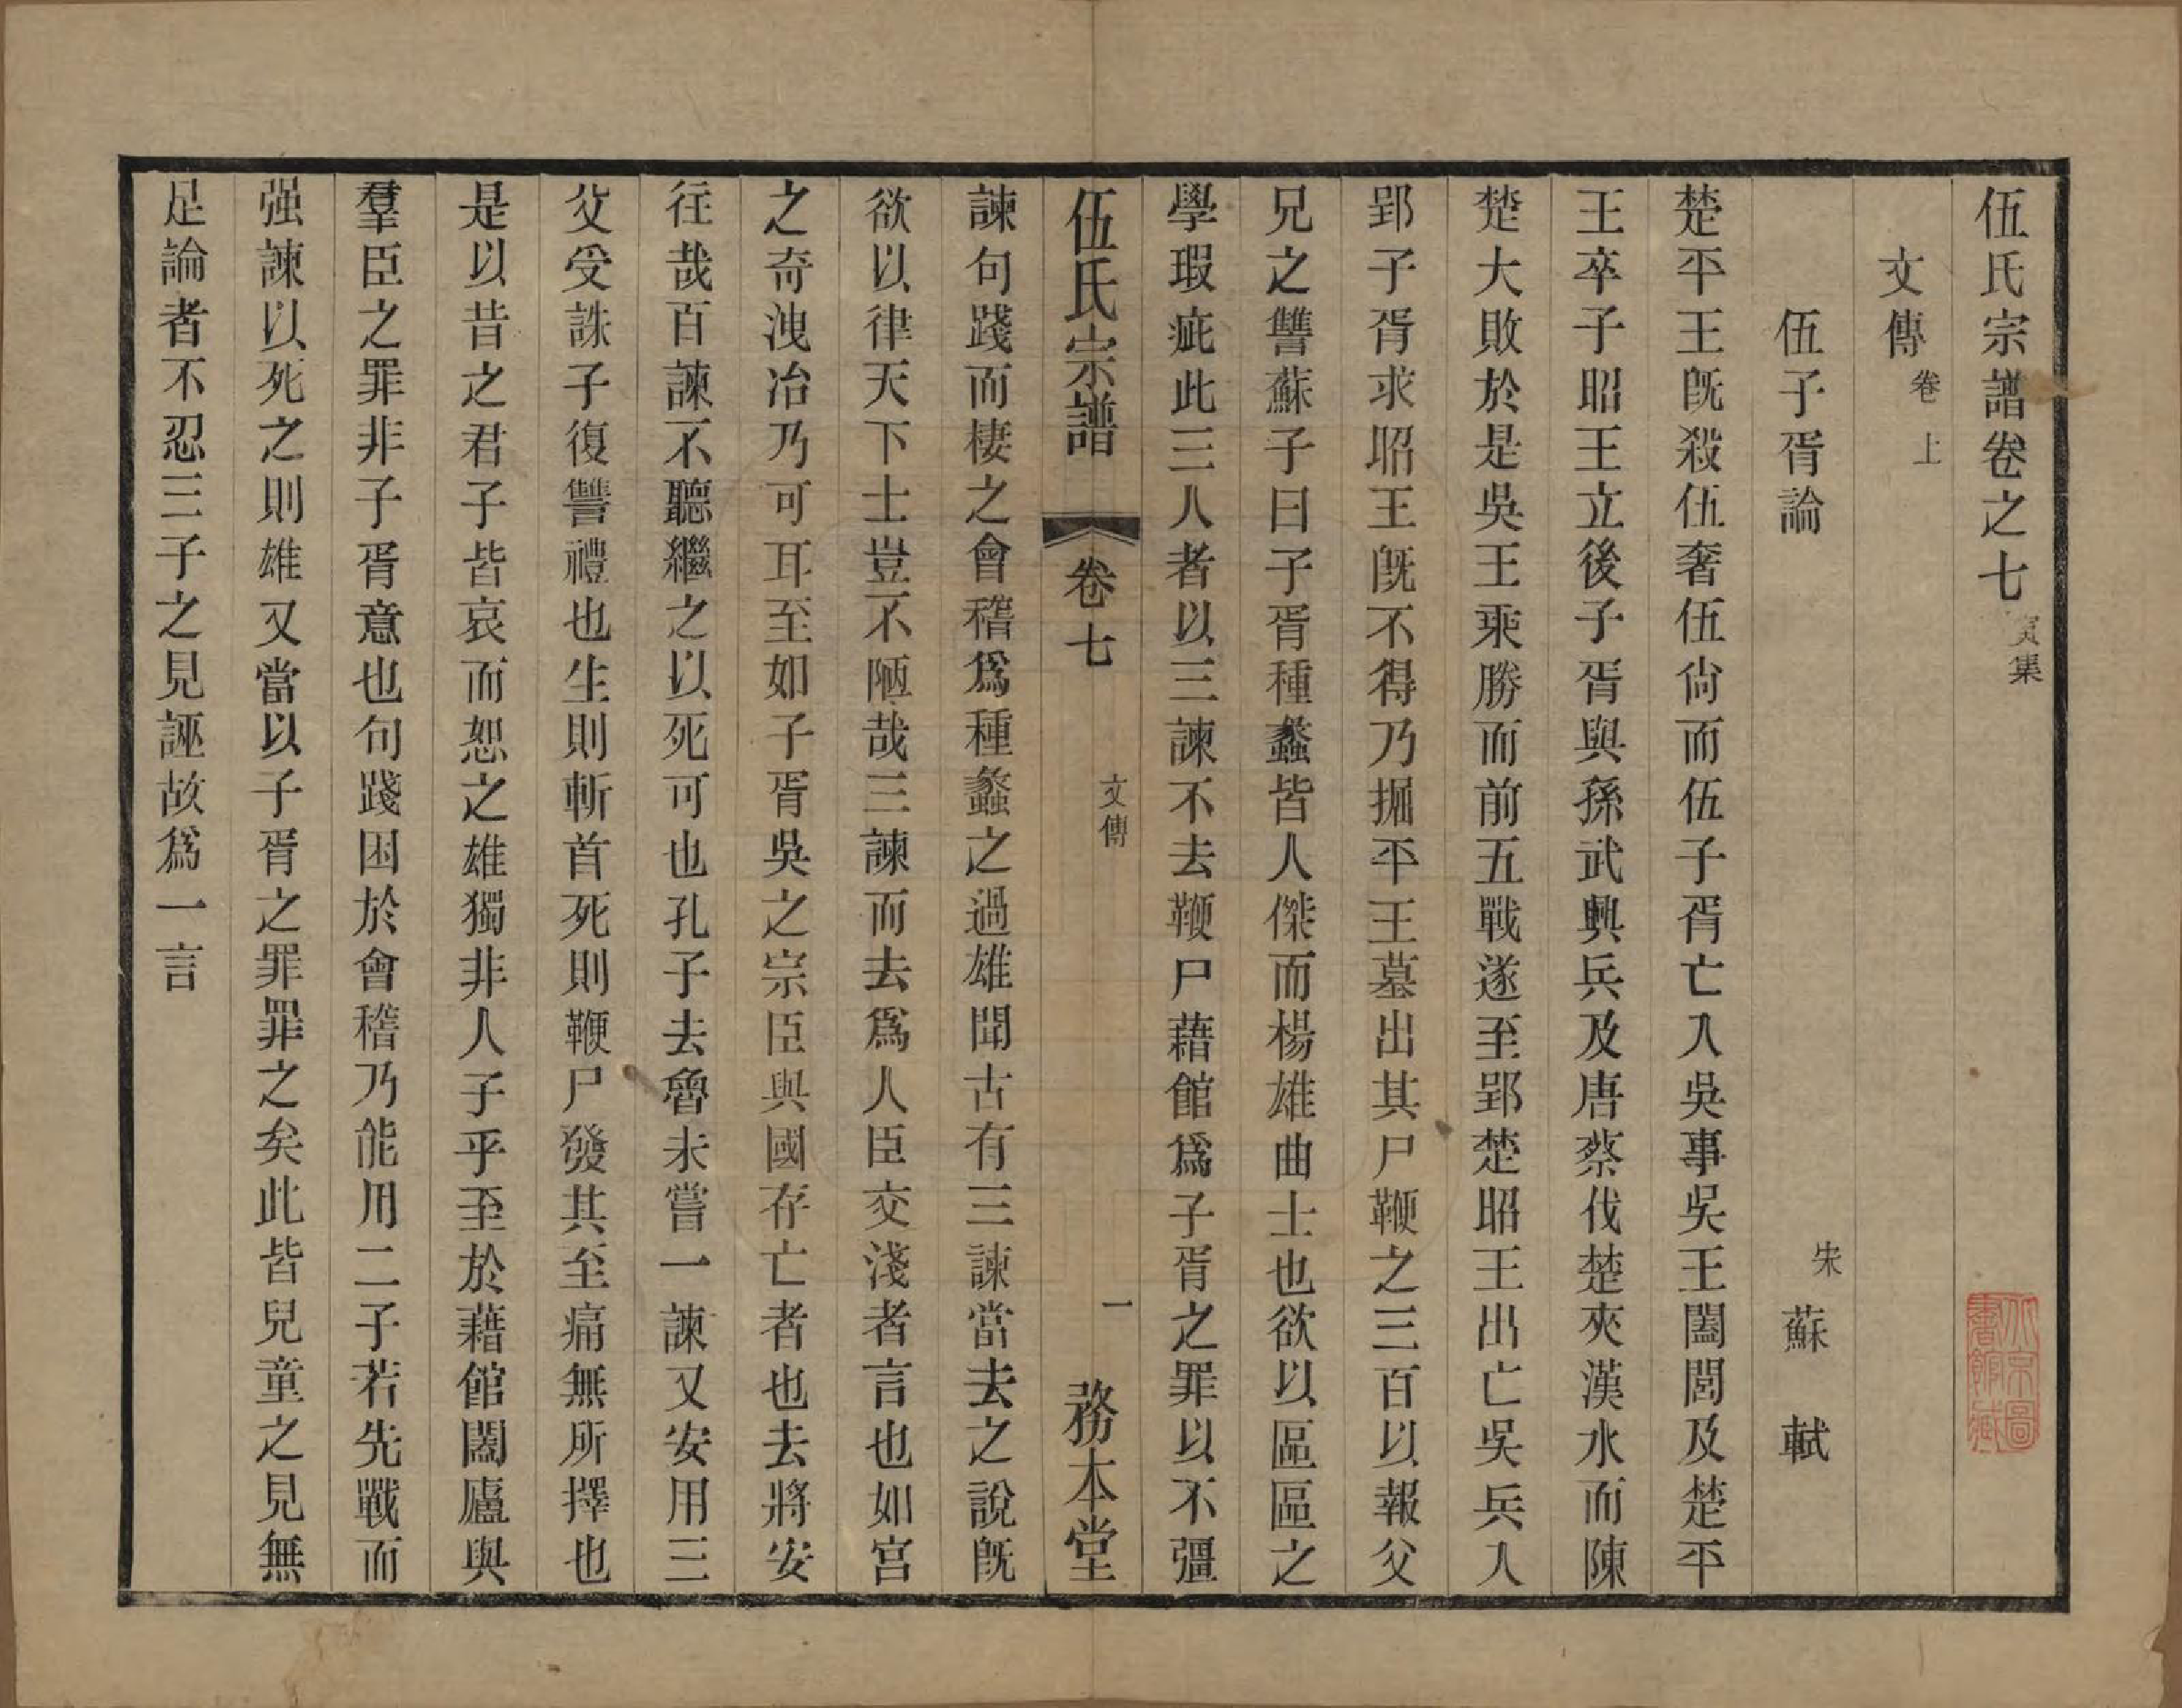 伍氏宗譜卷之七 寅集
文傳 卷上
伍子胥論 宋 蘇軾
楚平王旣殺伍奢伍尙而伍子胥亡入吳事吳王闔閭及楚平
王卒子昭王立後子胥與孫武興兵及唐蔡伐楚夾漢水而陳
楚大敗於是吳王乘勝而前五戰遂至郢楚昭王出亡吳兵入
郢子胥求昭王旣不得乃掘平王墓出其尸鞭之三百以報父
兄之讐蘇子曰子胥種蠡皆人傑而楊雄曲士也欲以區區之
學瑕疵此三人者以三諫不去鞭尸藉館爲子胥之罪以不彊
伍氏宗譜 卷七 文傳 一 務本堂
諫句踐而棲之會稽爲種蠡之過雄聞古有三諫當去之說旣
欲以律天下士豈不陋哉三諫而去爲人臣交淺者言也如宮
之奇洩冶乃可耳至如子胥吳之宗臣與國存亡者也去將安
往哉百諫不聽繼之以死可也孔子去魯未嘗一諫又安用三
父受誅子復讐禮也生則斬首死則鞭尸發其至痛無所擇也
是以昔之君子皆哀而恕之雄獨非人子乎至於藉館闔廬與
羣臣之罪非子胥意也句踐困於會稽乃能用二子若先戰而
强諫以死之則雄又當以子胥之罪罪之矣此皆兒童之見無
足論者不忍三子之見誣故爲一言